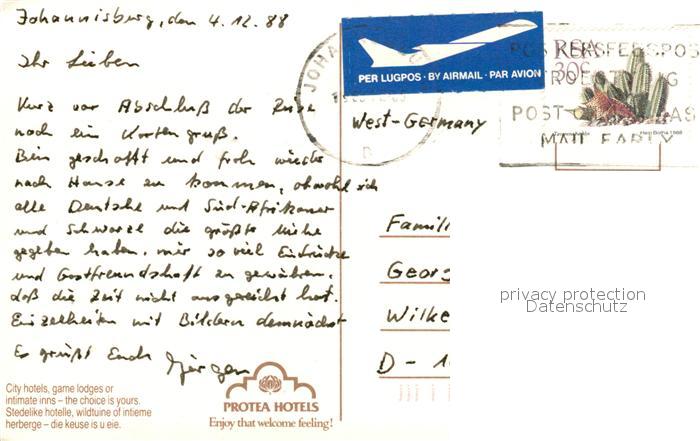 Johannisburg, den 4.12.88
Ihr Lieben
Kurz vor Abschluß der Reise
noch ein Kartengruß.
Bin geschafft und froh wieder
nach Hause zu kommen, obwohl sich
alle Deutsche und Süd-Afrikaner
und Schwarze die größte Mühe
gegeben haben, mir so viel Eindrücke
und Gastfreundschaft zu gewähren,
daß die Zeit nicht ausgereicht hat.
Einzelheiten mit Bildern demnächst
Es grüßt Euch Jürgen
City hotels, game lodges or
intimate inns – the choice is yours.
Stedelike hotelle, wildtuine of intieme
herberge – die keuse is u eie.
PROTEA HOTELS
Enjoy that welcome feeling!
PER LUGPOS · BY AIRMAIL · PAR AVION
JOHA
West-Germany
RSA
30c
KERSFEESPOS
POST
MAIL EARLY
Hein Botha 1988
Famili
Georg
Wilke
D - 1
privacy protection
Datenschutz